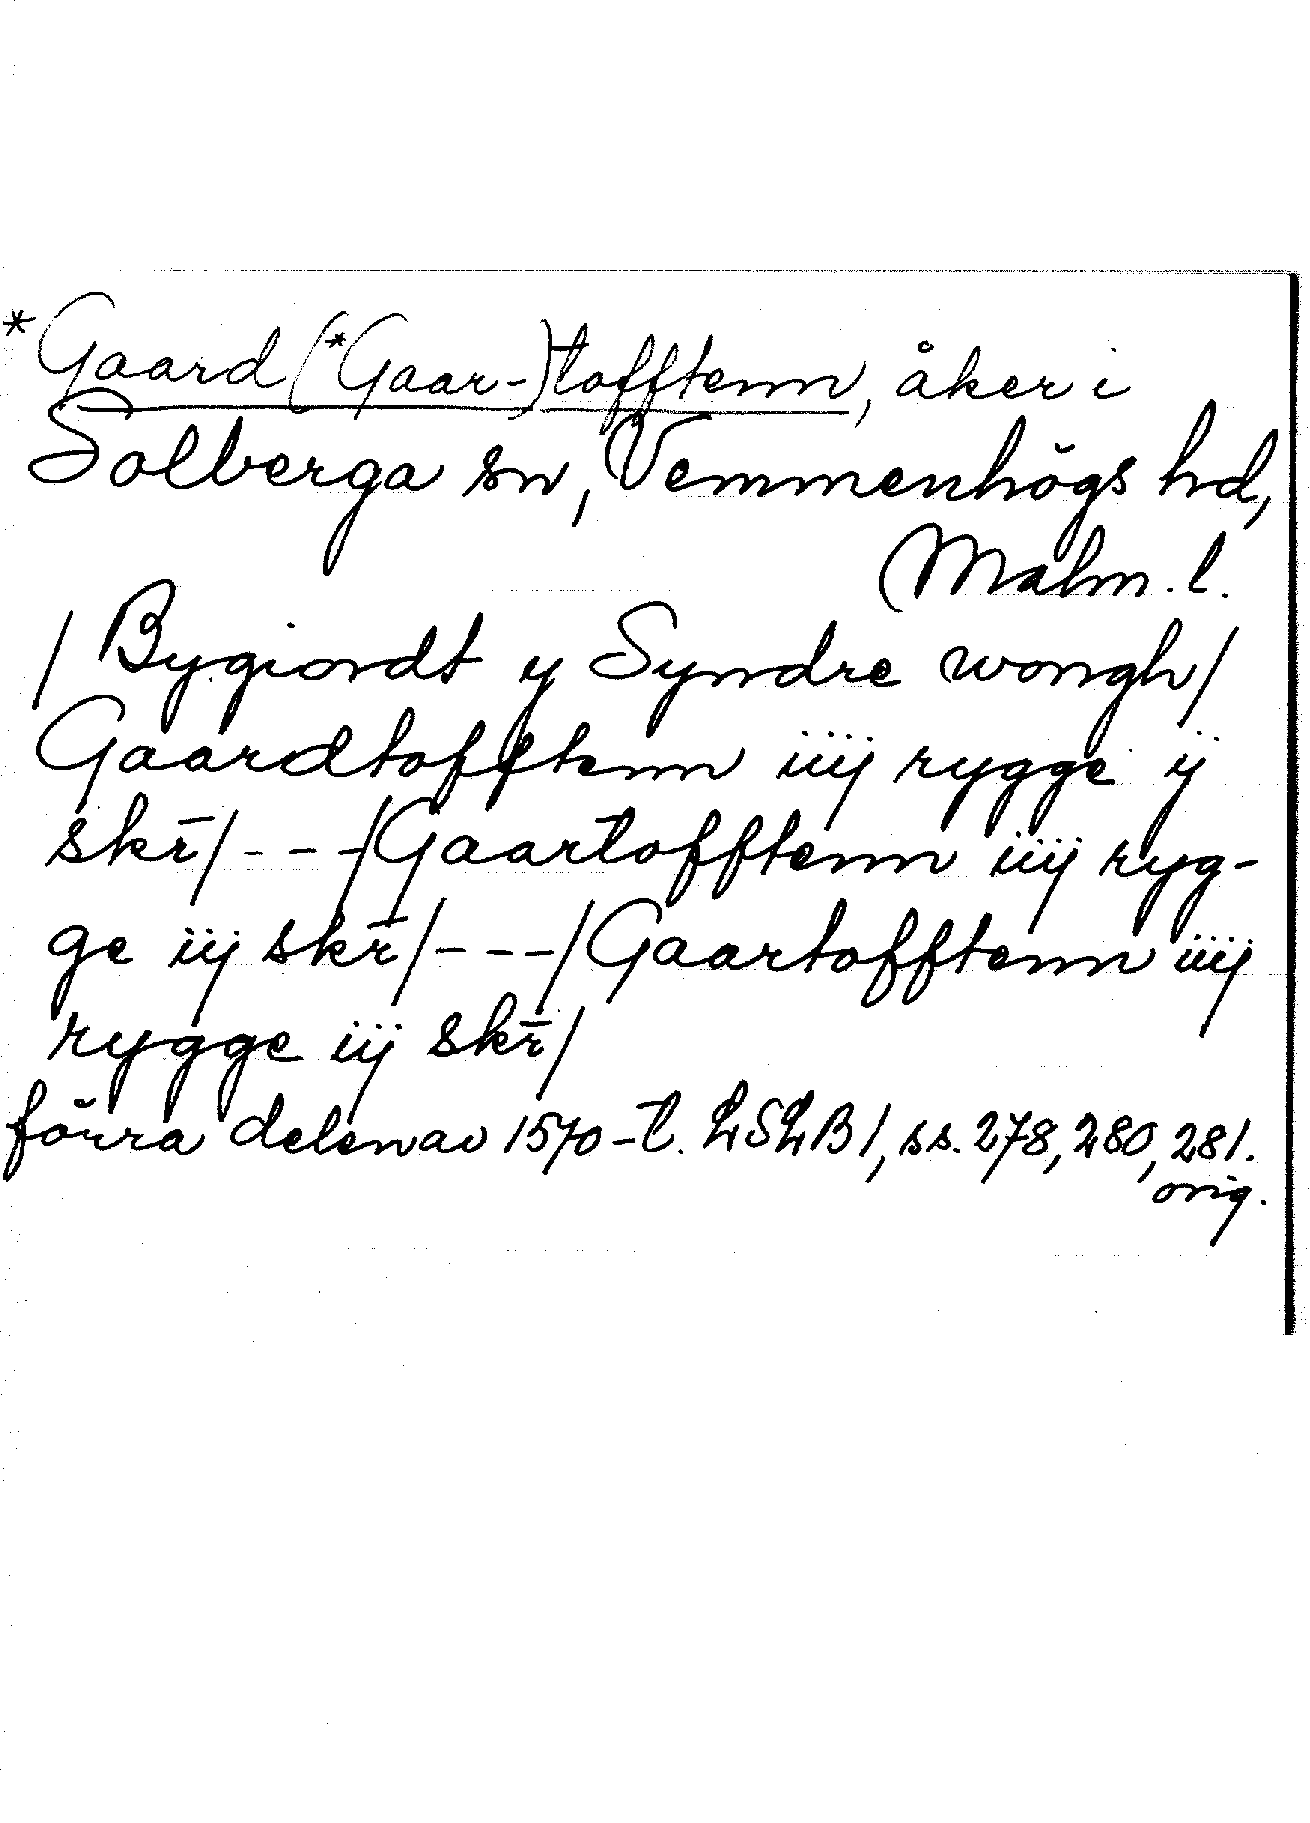 *Gaard(*Gaar-)tofftenn, åker i
Solberga sn, Vemmenhögs hd,
Malm. l.
/Bygiordt y Syndre wongh/
Gaardtofftenn iiij rygge ij
skr̄/---/Gaartofftenn iiij ryg-
ge iij skr̄/---/Gaartofftenn iiij
rygge iij skr̄/
förra delen av 1570-t. LSLB1, ss. 278, 280, 281.
orig.